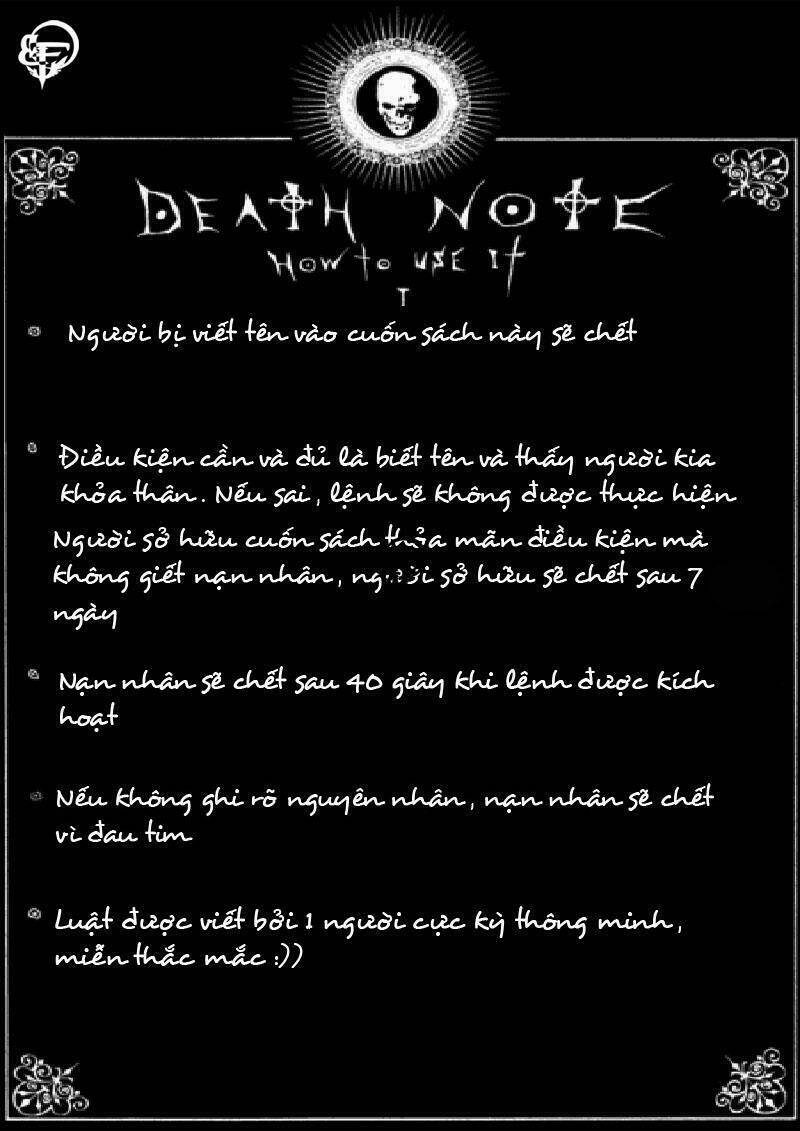 DEATH NOTE
How to use it
I
Người bị viết tên vào cuốn sách này sẽ chết
Điều kiện cần và đủ là biết tên và thấy người kia
khỏa thân. Nếu sai, lệnh sẽ không được thực hiện
Người sở hữu cuốn sách thỏa mãn điều kiện mà
không giết nạn nhân, người sở hữu sẽ chết sau 7
ngày
Nạn nhân sẽ chết sau 40 giây khi lệnh được kích
hoạt
Nếu không ghi rõ nguyên nhân, nạn nhân sẽ chết
vì đau tim
Luật được viết bởi 1 người cực kỳ thông minh,
miễn thắc mắc :))